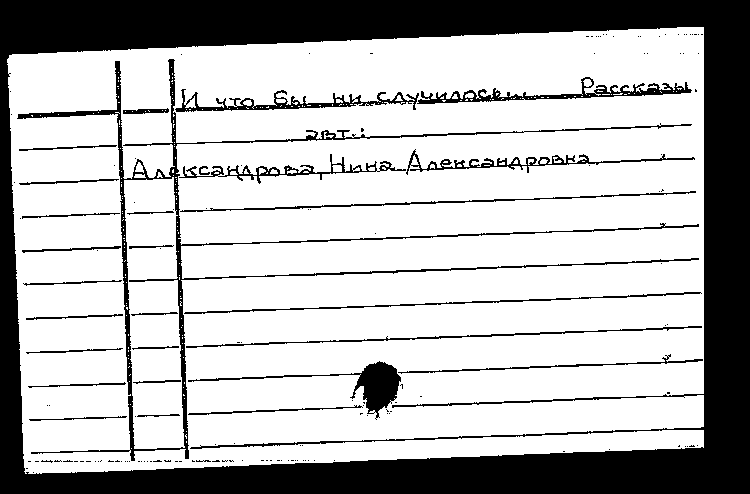 И что бы ни случилось... Рассказы.
авт.:
Александрова, Нина Александровна